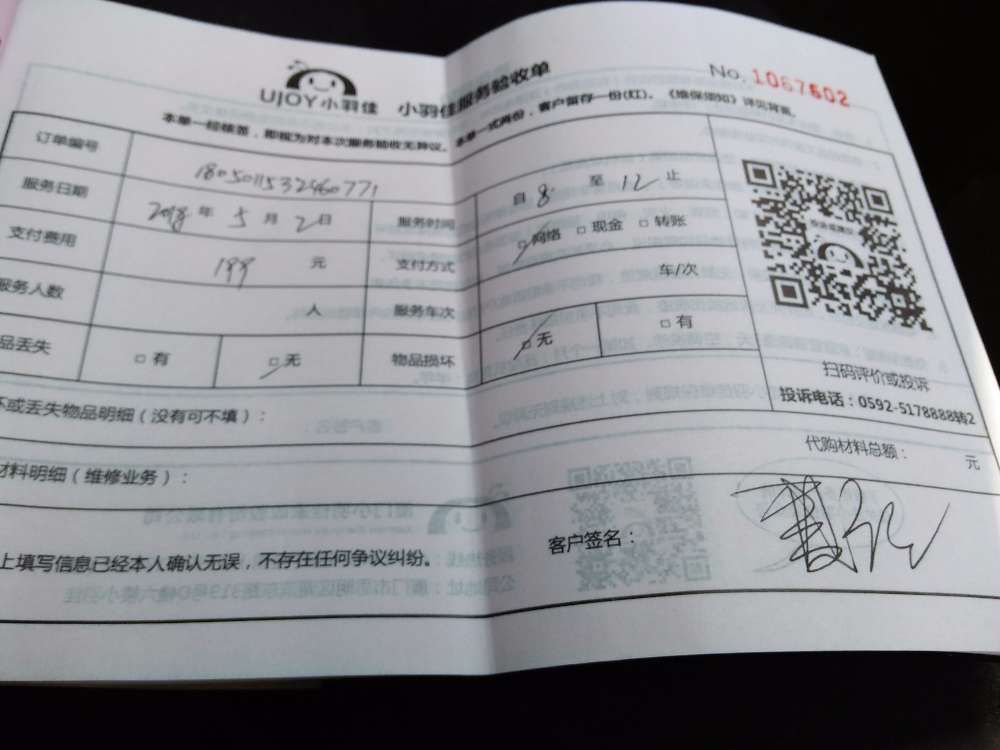 UJOY小羽佳 小羽佳服务验收单 No.1067602
本单一经核签，即视为对本次服务验收无异议。本单一式两份，客户留存一份(红)。《维保须知》详见背面。
订单编号 1805011532460771
服务日期 2018年5月2日 服务时间 自8至12止
支付费用 199 元 支付方式 □网络 □现金 □转账
服务人数 人 服务车次 车/次
品丢失 □有 □无 物品损坏 □无 □有
扫码评价或投诉
投诉电话：0592-5178888转2
坏或丢失物品明细（没有可不填）：
材料明细（维修业务）： 代购材料总额： 元
上填写信息已经本人确认无误，不存在任何争议纠纷。 客户签名：